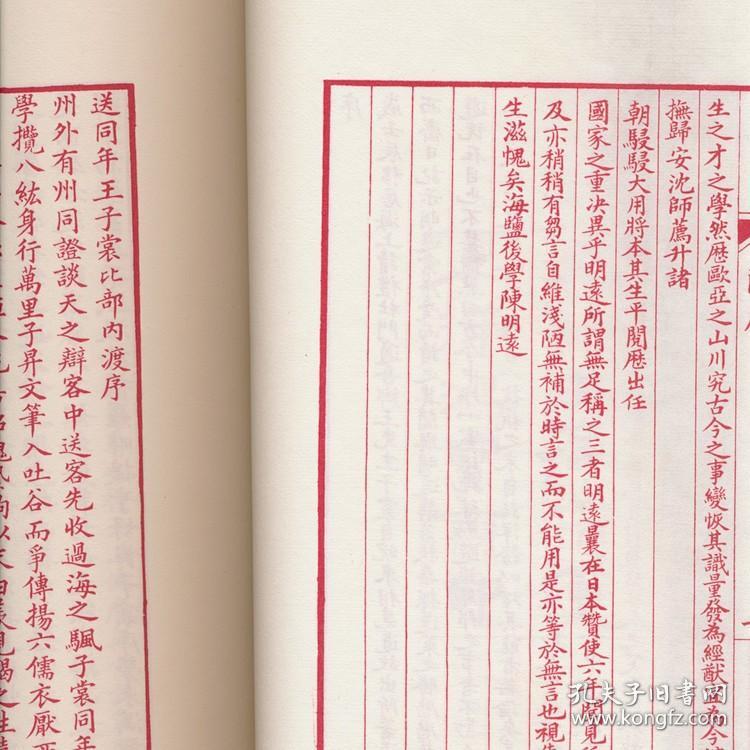 生之才之學然歷歐亞之山川究古今之事變恢其識量發為經猷
撫歸安沈師薦升諸
朝駸駸大用將本其生平閱歷出任
國家之重決異乎明遠所謂無足稱之三者明遠曩在日本贊使六年閱見
及亦稍稍有芻言自維淺陋無補於時言之而不能用是亦等於無言也視
生滋愧矣海鹽後學陳明遠
送同年王子裳比部內渡序
州外有州同證談天之辯客中送客先收過海之颿子裳同年
學攬八紘身行萬里子昇文筆入吐谷而爭傳揚六儒衣厭
孔夫子旧书网
www.kongfz.com